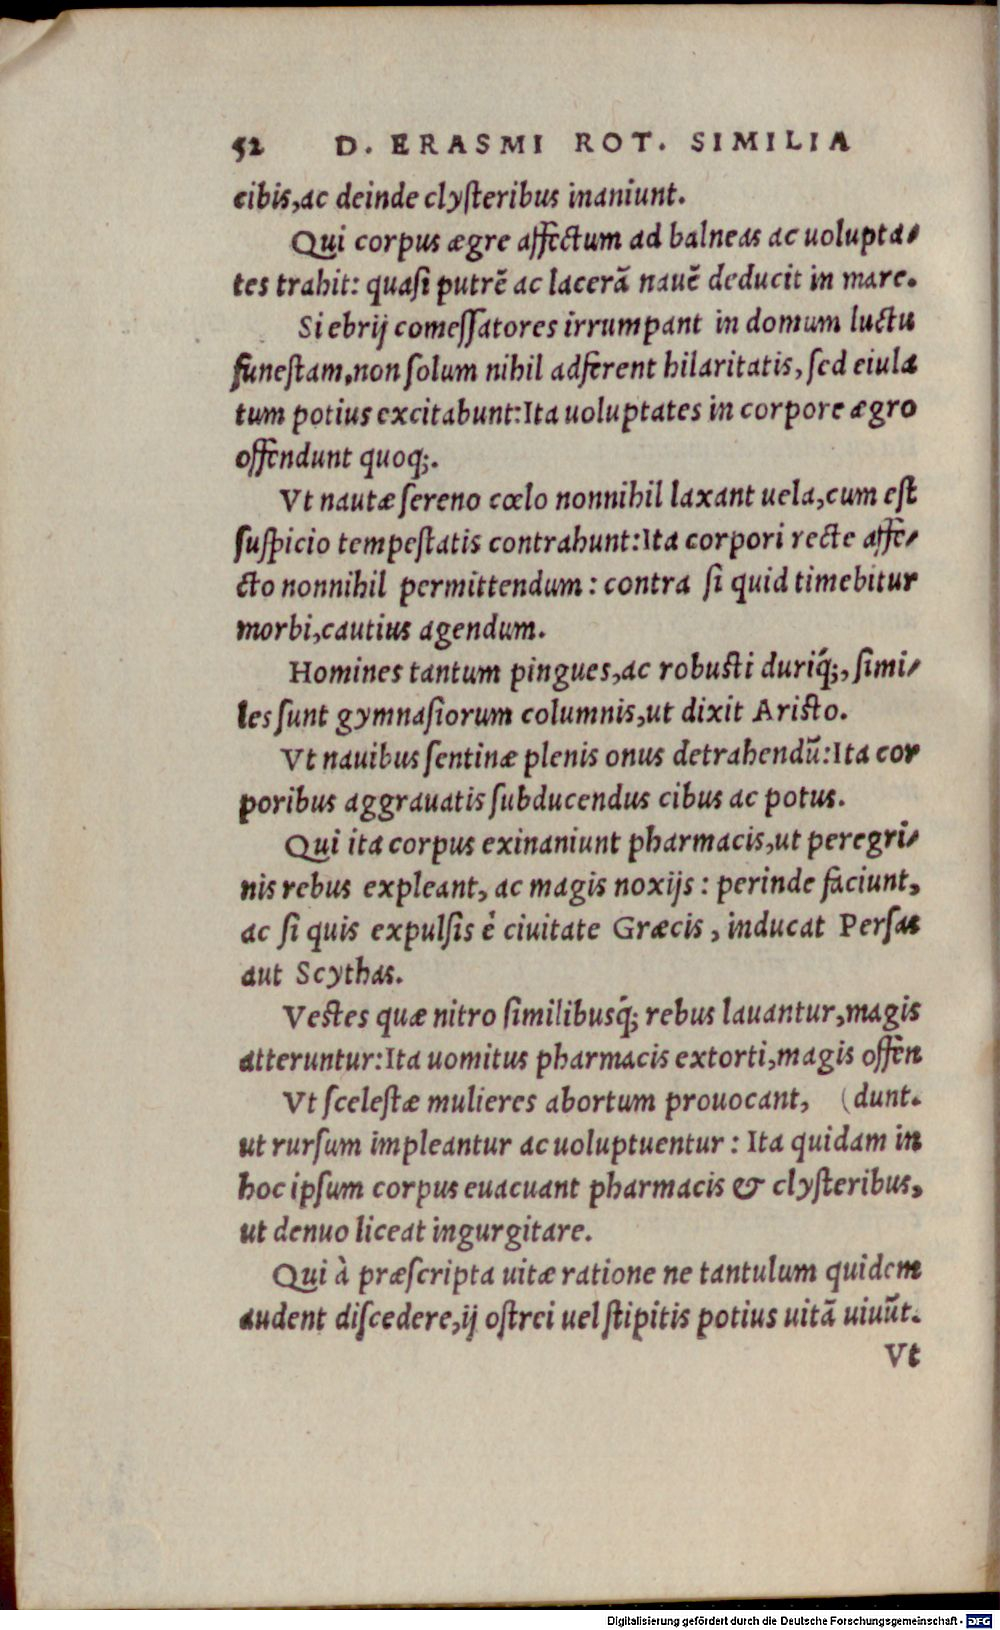 52 D. ERASMI ROT. SIMILIA
cibis, ac deinde clyſteribus inaniunt.
Qui corpus ægre affectum ad balneas ac uolupta-
tes trahit: quaſi putrē ac lacerā nauē deducit in mare.
Si ebrij comeſſatores irrumpant in domum luctu
funeſtam, non ſolum nihil adferent hilaritatis, ſed eiula
tum potius excitabunt: Ita uoluptates in corpore ægro
offendunt quoq;.
Vt nautæ ſereno cœlo nonnihil laxant uela, cum eſt
ſuſpicio tempeſtatis contrahunt: Ita corpori recte affe-
cto nonnihil permittendum: contra ſi quid timebitur
morbi, cautius agendum.
Homines tantum pingues, ac robusti duriq́;, ſimi-
les ſunt gymnaſiorum columnis, ut dixit Aristo.
Vt nauibus ſentinæ plenis onus detrahendū: Ita cor
poribus aggrauatis ſubducendus cibus ac potus.
Qui ita corpus exinaniunt pharmacis, ut peregri-
nis rebus expleant, ac magis noxijs: perinde faciunt,
ac ſi quis expulſis è ciuitate Græcis, inducat Perſas
aut Scythas.
Vestes quæ nitro ſimilibusq́; rebus lauantur, magis
atteruntur: Ita uomitus pharmacis extorti, magis offen
Vt ſceleſtæ mulieres abortum prouocant, (dunt.
ut rurſum impleantur ac uoluptuentur: Ita quidam in
hoc ipſum corpus euacuant pharmacis & clyſteribus,
ut denuo liceat ingurgitare.
Qui à præſcripta uitæ ratione ne tantulum quidem
audent diſcedere, ij oſtrei uel ſtipitis potius uitā uiuūt.
Vt
Digitalisierung gefördert durch die Deutsche Forschungsgemeinschaft - DFG